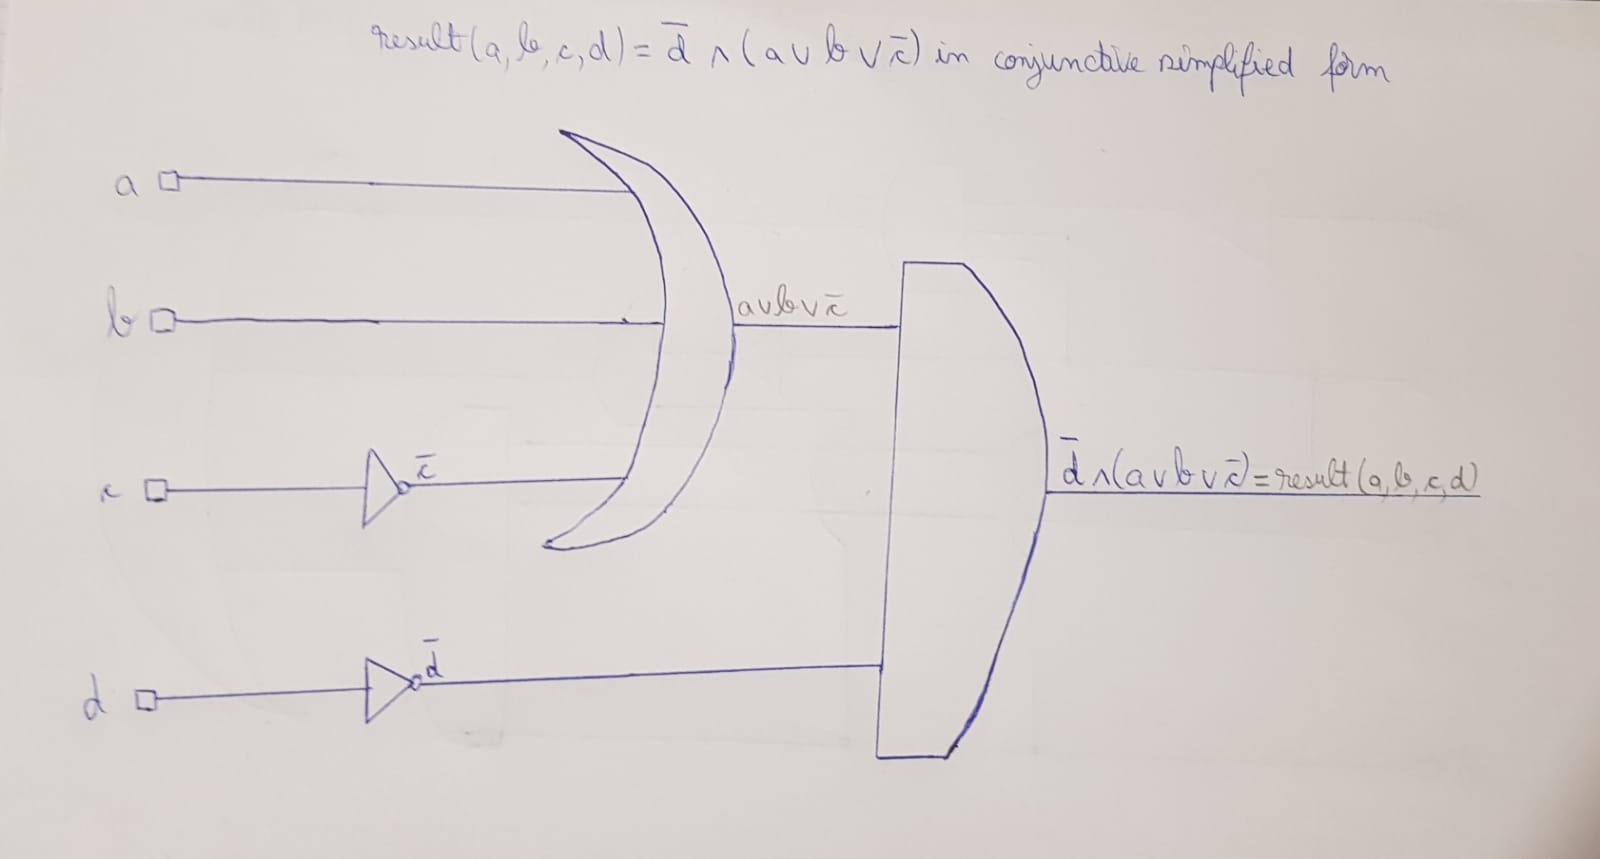 result(a, b, c, d) = d̅ ∧ (a ∨ b ∨ c̅) in conjunctive simplified form
a
b
a ∨ b ∨ c̅
c
c̅
d̅ ∧ (a ∨ b ∨ c̅) = result(a, b, c, d)
d
d̅